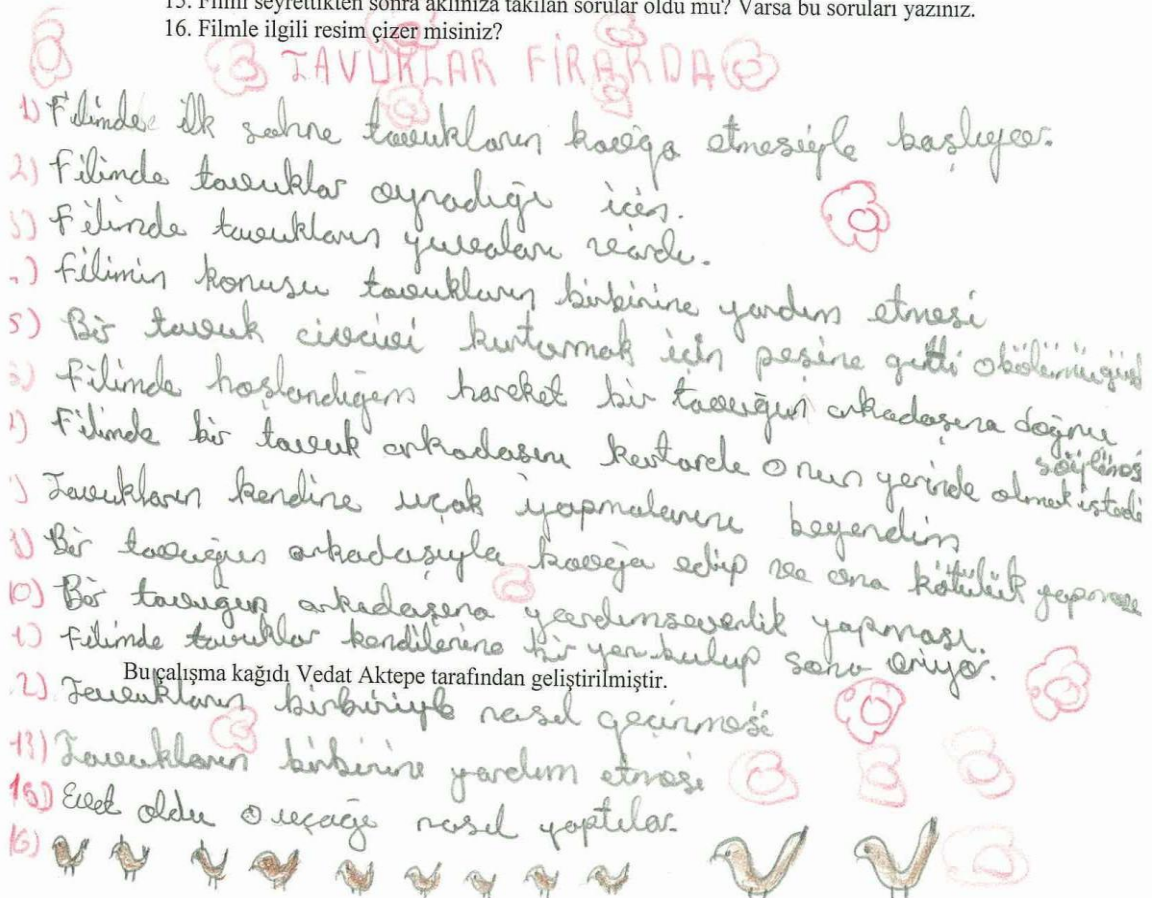 15. Filmi seyrettikten sonra aklınıza takılan sorular oldu mu? Varsa bu soruları yazınız.
16. Filmle ilgili resim çizer misiniz?
TAVUKLAR FİRARDA
1) Filimde ilk sahne tavukların kavga etmesiyle başlıyor.
2) Filimde tavuklar oynadığı için.
3) Filimde tavukların yuvaları vardı.
4) Filimin konusu tavukların birbirine yardım etmesi
5) Bir tavuk civcivi kurtarmak için peşine gitti
6) Filimde hoşlandığım hareket bir tavuğun arkadaşına doğru söylemesi
7) Filimde bir tavuk arkadaşını kurtardı onun yerinde olmak istedi
8) Tavukların kendine uçak yapmalarını beğendim
9) Bir tavuğun arkadaşıyla kavga edip ve ona kötülük yapması
10) Bir tavuğun arkadaşına yardımseverlik yapması.
11) Filimde tavuklar kendilerine bir yer bulup sona eriyor.
Bu çalışma kağıdı Vedat Aktepe tarafından geliştirilmiştir.
12) Tavukların birbiriyle nasıl geçinmesi
13) Tavukların birbirine yardım etmesi
15) Evet oldu o uçağı nasıl yaptılar.
16)